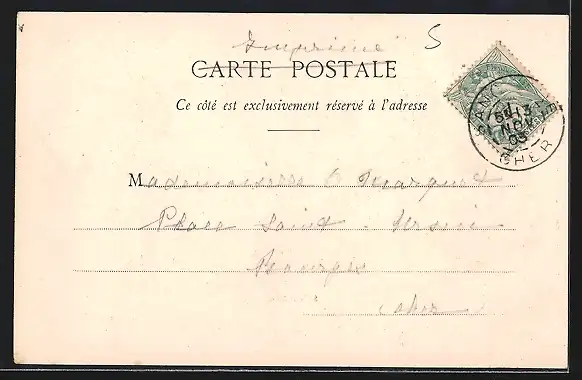 Imprimé 5
CARTE POSTALE
Ce côté est exclusivement réservé à l'adresse
Mademoiselle Marquet
Place Saint-Ursin
Bourges
Cher
SANC
13
NOV
03
CHER